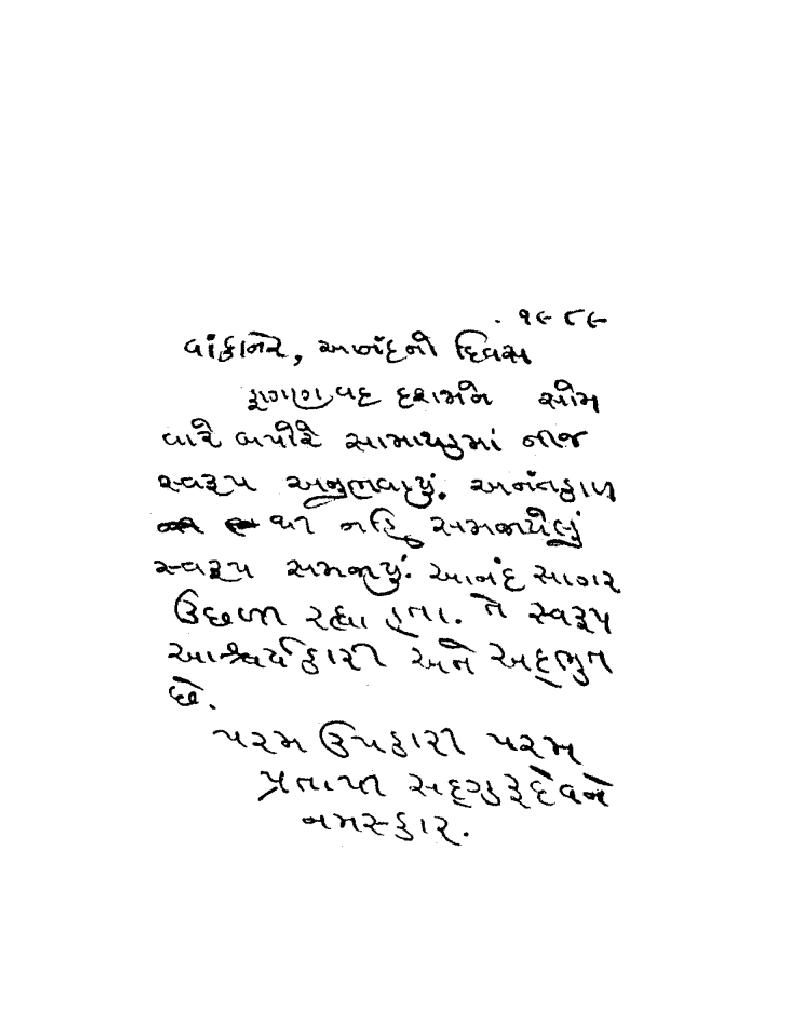 ૧૯૮૯
વાંકાનેર, આનંદનો દિવસ
ફાગણ વદ દશમને સોમ
વારે બપોરે સામાયિકમાં નીજ
સ્વરૂપ અનુભવાયું. અનંતકાળ
થી નહિ સમજાયેલું
સ્વરૂપ સમજાયું. આનંદ સાગર
ઉછળી રહ્યા હતા. તે સ્વરૂપ
આશ્ચર્યકારી અને અદ્‌ભુત
છે.
પરમ ઉપકારી પરમ
પ્રતાપી સદ્‌ગુરૂદેવને
નમસ્કાર.